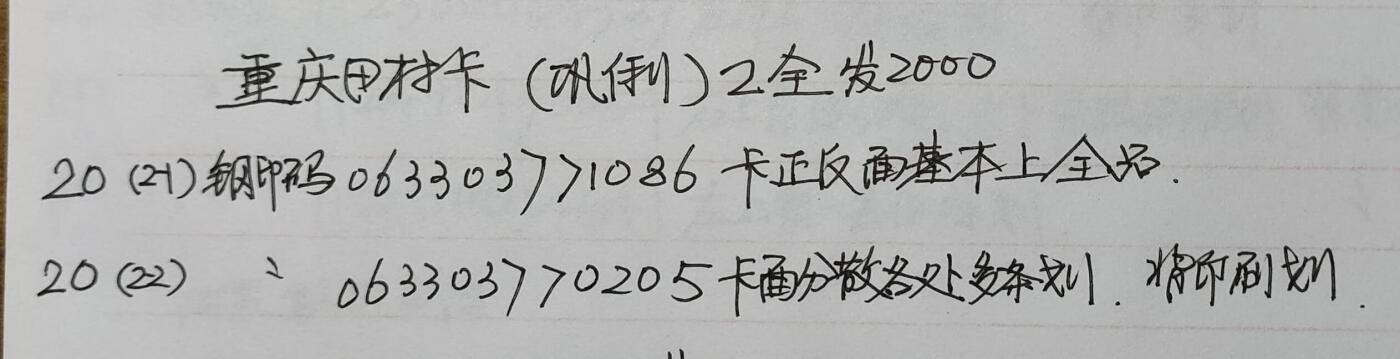 重庆田村卡（巩俐）2全发2000
20（21）钢印码063303771086 卡正反面基本上全品.
20（22） 〃 063303770205卡面分散各处多条划. 将印刷划.